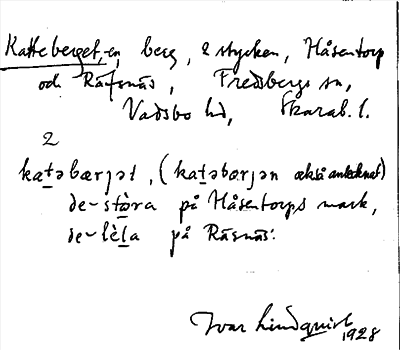 Katteberget, en, berg, 2 stycken, Håsentorp
och Räfsnäs, Fredsbergs sn,
Vadsbo hd, Skarab. l.
2
katəbærjət, (katəbærjən också antecknat)
de-stòra på Håsentorps mark,
de-lèla på Räsnäs.
Ivar Lindquist
1928